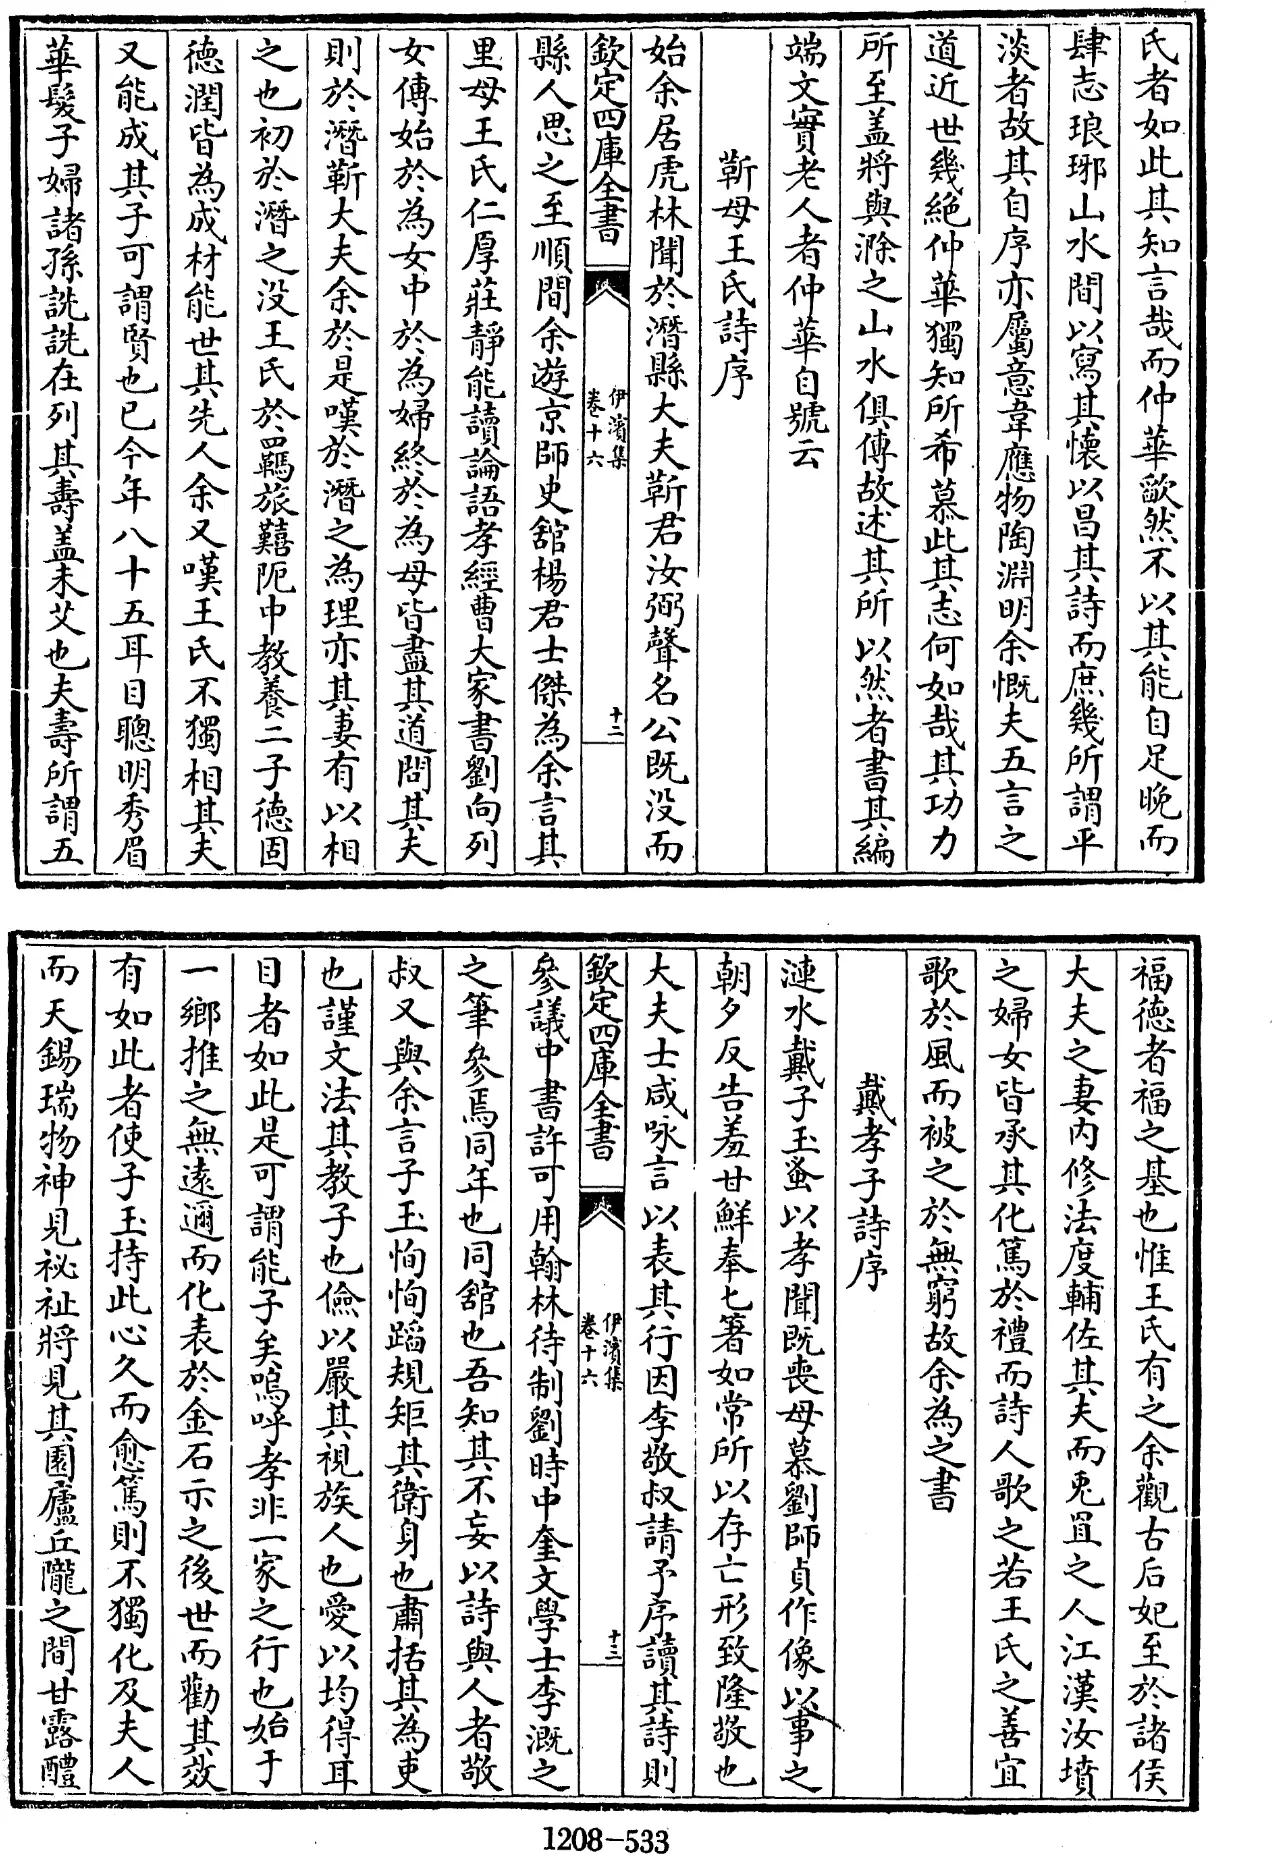 氏者如此其知言哉而仲華歉然不以其能自足晚而
肆志琅琊山水間以寫其懷以昌其詩而庶幾所謂平
淡者故其自序亦屬意韋應物陶淵明余慨夫五言之
道近世幾絶仲華獨知所希慕此其志何如哉其功力
所至盖將與滁之山水俱傳故述其所以然者書其編
端文實老人者仲華自號云
靳母王氏詩序
始余居虎林聞於潛縣大夫靳君汝弼聲名公既没而
欽定四庫全書
伊濱集
卷十六
十二
縣人思之至順間余遊京師史舘楊君士傑為余言其
里母王氏仁厚莊靜能讀論語孝經曹大家書劉向列
女傳始於為女中於為婦終於為母皆盡其道問其夫
則於潛靳大夫余於是嘆於潛之為理亦其妻有以相
之也初於潛之没王氏於羈旅囏阨中教養二子德固
德潤皆為成材能世其先人余又嘆王氏不獨相其夫
又能成其子可謂賢也已今年八十五耳目聰明秀眉
華髮子婦諸孫詵詵在列其壽盖未艾也夫壽所謂五
福德者福之基也惟王氏有之余觀古后妃至於諸侯
大夫之妻内修法度輔佐其夫而兎罝之人江漢汝墳
之婦女皆承其化篤於禮而詩人歌之若王氏之善宜
歌於風而被之於無窮故余為之書
戴孝子詩序
漣水戴子玉蚤以孝聞既喪母慕劉師貞作像以事之
朝夕反告羞甘鮮奉匕箸如常所以存亡形致隆敬也
大夫士咸咏言以表其行因李敬叔請予序讀其詩則
欽定四庫全書
伊濱集
卷十六
十三
參議中書許可用翰林待制劉時中奎文學士李溉之
之筆參焉同年也同舘也吾知其不妄以詩與人者敬
叔又與余言子玉恂恂蹈規矩其衛身也肅括其為吏
也謹文法其教子也儉以嚴其視族人也愛以均得耳
目者如此是可謂能子矣嗚呼孝非一家之行也始于
一鄉推之無遠邇而化表於金石示之後世而勸其效
有如此者使子玉持此心久而愈篤則不獨化及夫人
而天錫瑞物神見祕祉將見其園廬丘隴之間甘露醴
1208-533